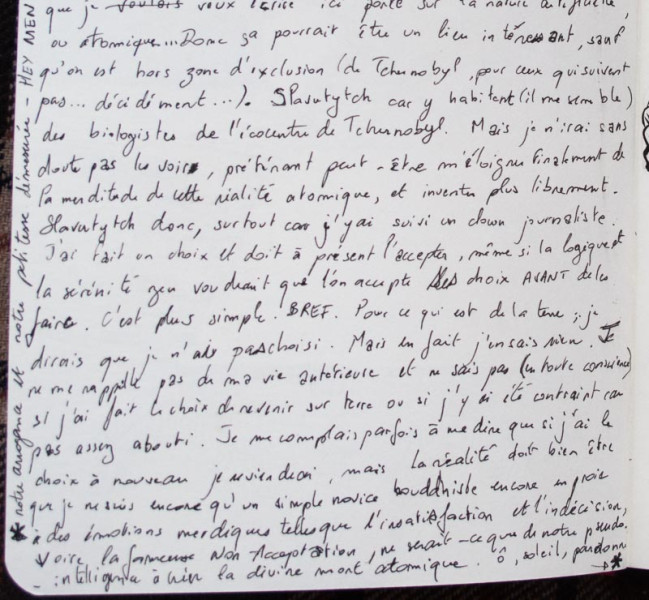 que je voulais veux écrire ici porte sur la nature artificielle,
ou atomique... Donc ça pourrait être un lieu intéressant, sauf
qu'on est hors zone d'exclusion (de Tchernobyl, pour ceux qui suivent
pas... décidément...). Slavutytch car y habitent (il me semble)
des biologistes de l'écocentre de Tchernobyl. Mais je n'irai sans
doute pas les voir, préférant peut-être m'éloigner finalement de
la merditude de cette réalité atomique, et inventer plus librement.
Slavutytch donc, surtout car j'y ai suivi un clown journaliste.
J'ai fait un choix et doit à présent l'accepter, même si la logique et
la sérénité zen voudraient que l'on accepte les choix AVANT de les
faire. C'est plus simple. BREF. Pour ce qui est de la terre, je
dirais que je n'ai pas choisi. Mais en fait j'en sais rien. Je
ne me rappelle pas de ma vie antérieure et ne sais pas (en toute conscience)
si j'ai fait le choix de revenir sur terre ou si j'y ai été contraint car
pas assez abouti. Je me complais parfois à me dire que si j'ai le
choix à nouveau je reviendrai, mais la réalité doit bien être
que je ne suis encore qu'un simple novice bouddhiste encore en proie
à des émotions merdiques telles que l'insatisfaction et l'indécision,
voire la fameuse Non Acceptation, ne serait-ce que de notre pseudo-
intelligence à créer la divine mort atomique. Ô, soleil, pardonne
→ *
* notre arrogance et notre petitesse démesurée - HEY MEN